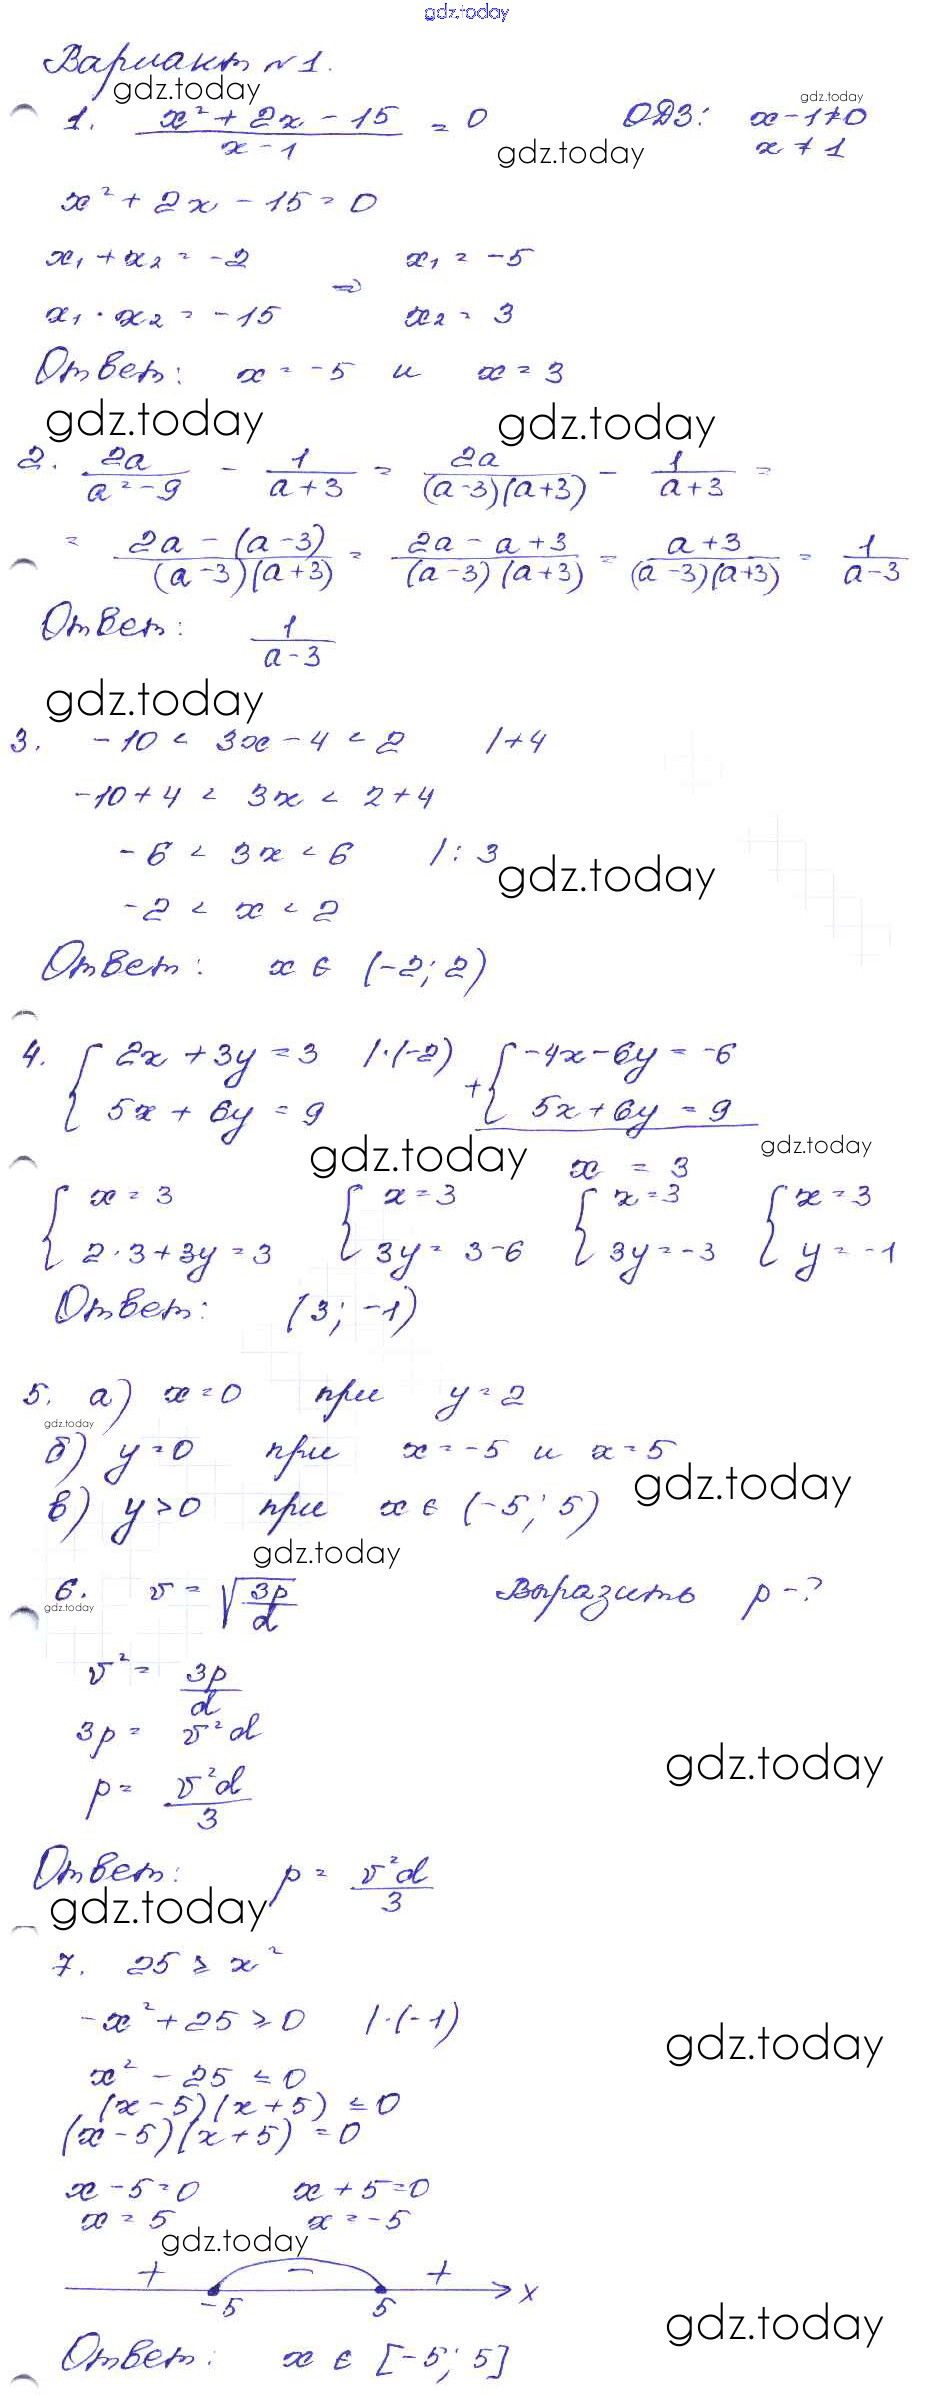 gdz.today
Вариант №1.
gdz.today
1. (x² + 2x - 15)/(x - 1) = 0 ОДЗ: x - 1 ≠ 0
gdz.today
gdz.today
x ≠ 1
x² + 2x - 15 = 0
x₁ + x₂ = -2 ⇒ x₁ = -5
x₁ · x₂ = -15 x₂ = 3
Ответ: x = -5 и x = 3
gdz.today gdz.today
2. 2a/(a² - 9) - 1/(a + 3) = 2a/((a - 3)(a + 3)) - 1/(a + 3) =
= (2a - (a - 3))/((a - 3)(a + 3)) = (2a - a + 3)/((a - 3)(a + 3)) = (a + 3)/((a - 3)(a + 3)) = 1/(a - 3)
Ответ: 1/(a - 3)
gdz.today
3. -10 < 3x - 4 < 2 | +4
-10 + 4 < 3x < 2 + 4
-6 < 3x < 6 | : 3
gdz.today
-2 < x < 2
Ответ: x ∈ (-2; 2)
4. { 2x + 3y = 3 | · (-2) + { -4x - 6y = -6
5x + 6y = 9 5x + 6y = 9
gdz.today gdz.today
x = 3
{ x = 3 { x = 3 { x = 3 { x = 3
2 · 3 + 3y = 3 3y = 3 - 6 3y = -3 y = -1
Ответ: (3; -1)
5. а) x = 0 при y = 2
gdz.today
б) y = 0 при x = -5 и x = 5
gdz.today
в) y > 0 при x ∈ (-5; 5)
gdz.today
6. v = √(3p/d) Выразить p - ?
gdz.today
v² = 3p/d
3p = v²d
gdz.today
p = v²d/3
Ответ: p = v²d/3
gdz.today
7. 25 ≥ x²
-x² + 25 ≥ 0 | · (-1)
gdz.today
x² - 25 ≤ 0
(x - 5)(x + 5) ≤ 0
(x - 5)(x + 5) = 0
x - 5 = 0 x + 5 = 0
x = 5 x = -5
gdz.today
+ - +
-5 5 x
gdz.today
Ответ: x ∈ [-5; 5]